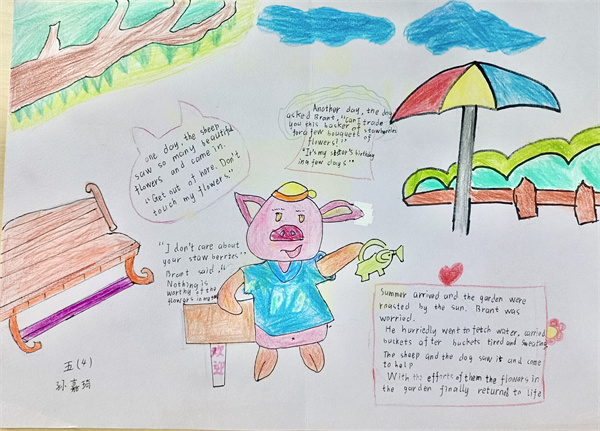 one day, the sheep
saw so many beautiful
flowers and came in.
"Get out of here. Don't
touch my flowers."
Another day, the dog
asked Brant, "can I trade
you this basker of stawberries
for a few bouquets of
flowers!"
"It's my sister's birthday
in a few days"
"I don't care about
your stawberries"
Brant said. "
Nothing is
worthy of the
flowers in my
欢迎
Summer arrived and the garden were
roasted by the sun. Brant was
worried.
He hurriedly went to fetch water, carried
buckets after buckets tired and sweating
The sheep and the dog saw it and come
to help
With the efforts of them the flowers in
the garden finally returned to life
五(4)
孙嘉琦